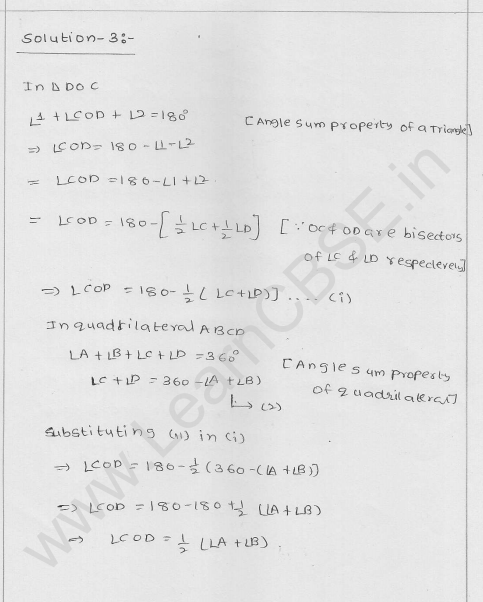 Solution-3:-
In ∆ DOC
∠1 + ∠COD + ∠2 = 180° [Angle sum property of a Triangle]
⇒ ∠COD = 180 - ∠1 - ∠2
= ∠COD = 180 - ∠1 + ∠2
= ∠COD = 180 - [1/2 ∠C + 1/2 ∠D] [∵ OC & OD are bisectors
of ∠C & ∠D respecterely]
⇒ ∠COD = 180 - 1/2 (∠C + ∠D)] .... (i)
In quadrilateral ABCD
∠A + ∠B + ∠C + ∠D = 360° [Angle sum property
of quadrilateral]
∠C + ∠D = 360 - ∠A + ∠B)
↳ (2)
Substituting (ii) in (i)
⇒ ∠COD = 180 - 1/2 (360 - (∠A + ∠B)]
⇒ ∠COD = 180 - 180 + 1/2 (∠A + ∠B)
⇒ ∠COD = 1/2 (∠A + ∠B).
www.LearnCBSE.in